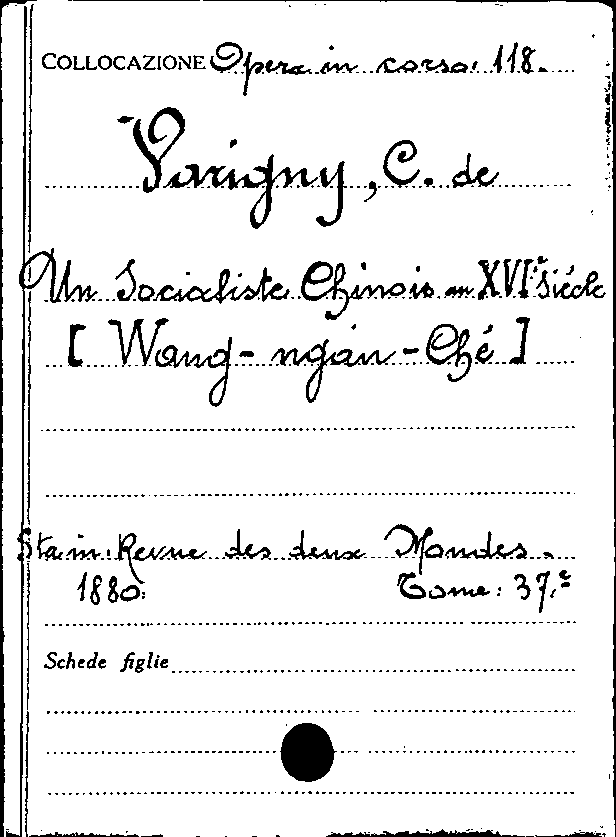 COLLOCAZIONE Opera in corso. 118.
Varigny, C. de
Un Socialiste Chinois au XVIe Siécle
[ Wang-ngan-Ché ]
Sta in: Revue des deux Mondes.
1880. Tome: 37.e
Schede figlie